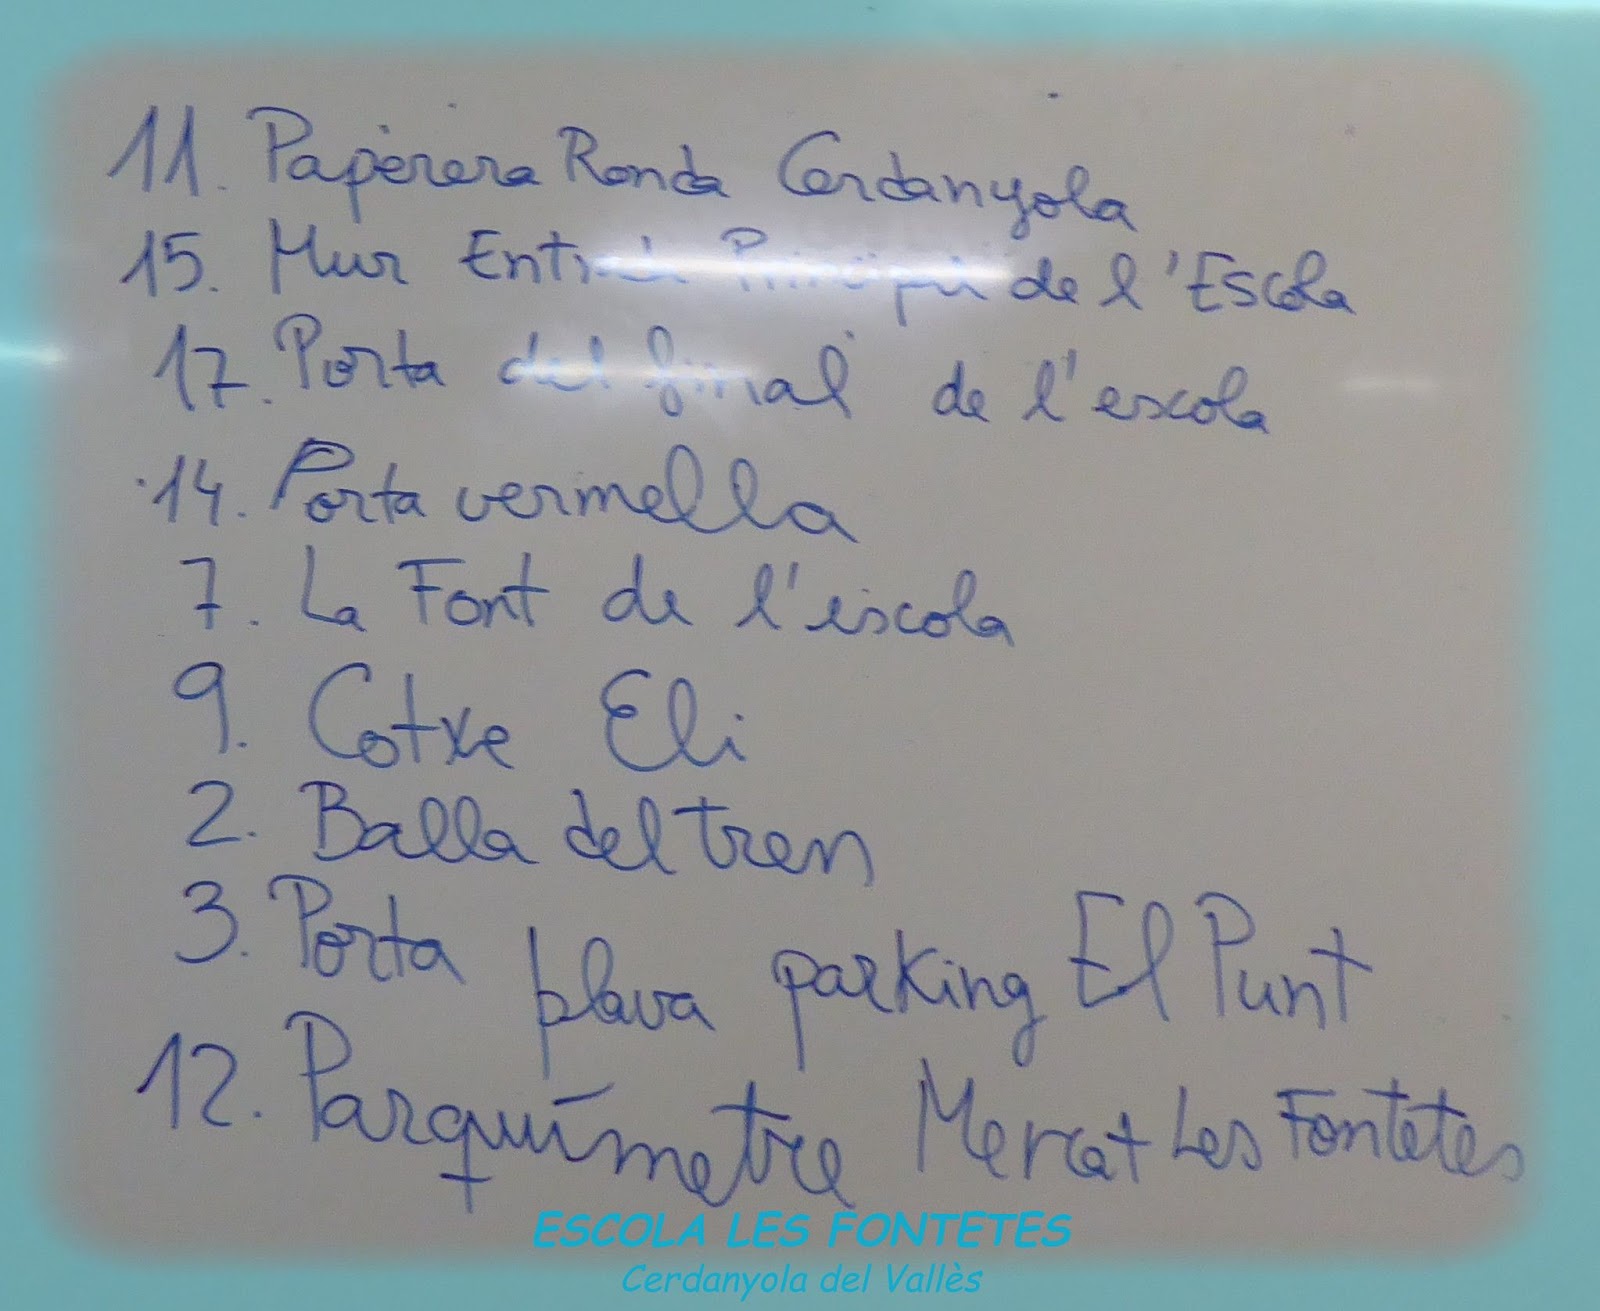 11. Paperera Ronda Cerdanyola
15. Mur Entrada de l'Escola
17. Porta del final de l'escola
14. Porta vermella
7. La Font de l'escola
9. Cotxe Eli
2. Balla del tren
3. Porta blava parking El Punt
12. Parquímetre Mercat Les Fontetes
ESCOLA LES FONTETES
Cerdanyola del Vallès